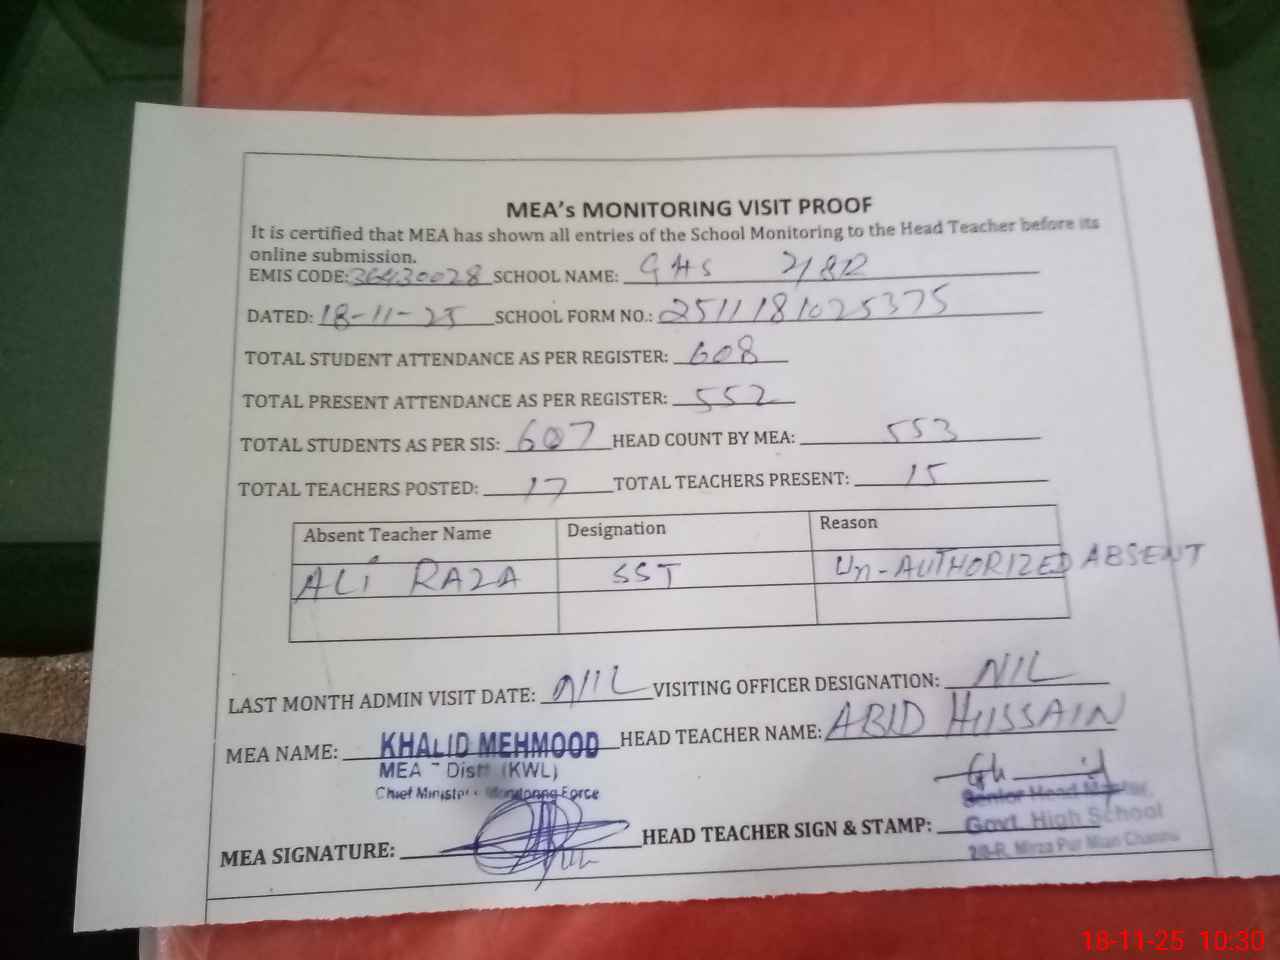 MEA's MONITORING VISIT PROOF
It is certified that MEA has shown all entries of the School Monitoring to the Head Teacher before its
online submission.
EMIS CODE: 36430028 SCHOOL NAME: GHS 2/8R
DATED: 18-11-25 SCHOOL FORM NO.: 2511181025375
TOTAL STUDENT ATTENDANCE AS PER REGISTER: 608
TOTAL PRESENT ATTENDANCE AS PER REGISTER: 552
TOTAL STUDENTS AS PER SIS: 607 HEAD COUNT BY MEA: 553
TOTAL TEACHERS POSTED: 17 TOTAL TEACHERS PRESENT: 15
Absent Teacher Name Designation Reason
ALI RAZA SST Un-AUTHORIZED ABSENT
LAST MONTH ADMIN VISIT DATE: NIL VISITING OFFICER DESIGNATION: NIL
MEA NAME: KHALID MEHMOOD HEAD TEACHER NAME: ABID HUSSAIN
MEA - Distt (KWL)
Chief Minister's Monitoring Force
Senior Head Master,
MEA SIGNATURE: HEAD TEACHER SIGN & STAMP: Govt. High School
2/8-R, Mirza Pur Mian Channu
18-11-25 10:30